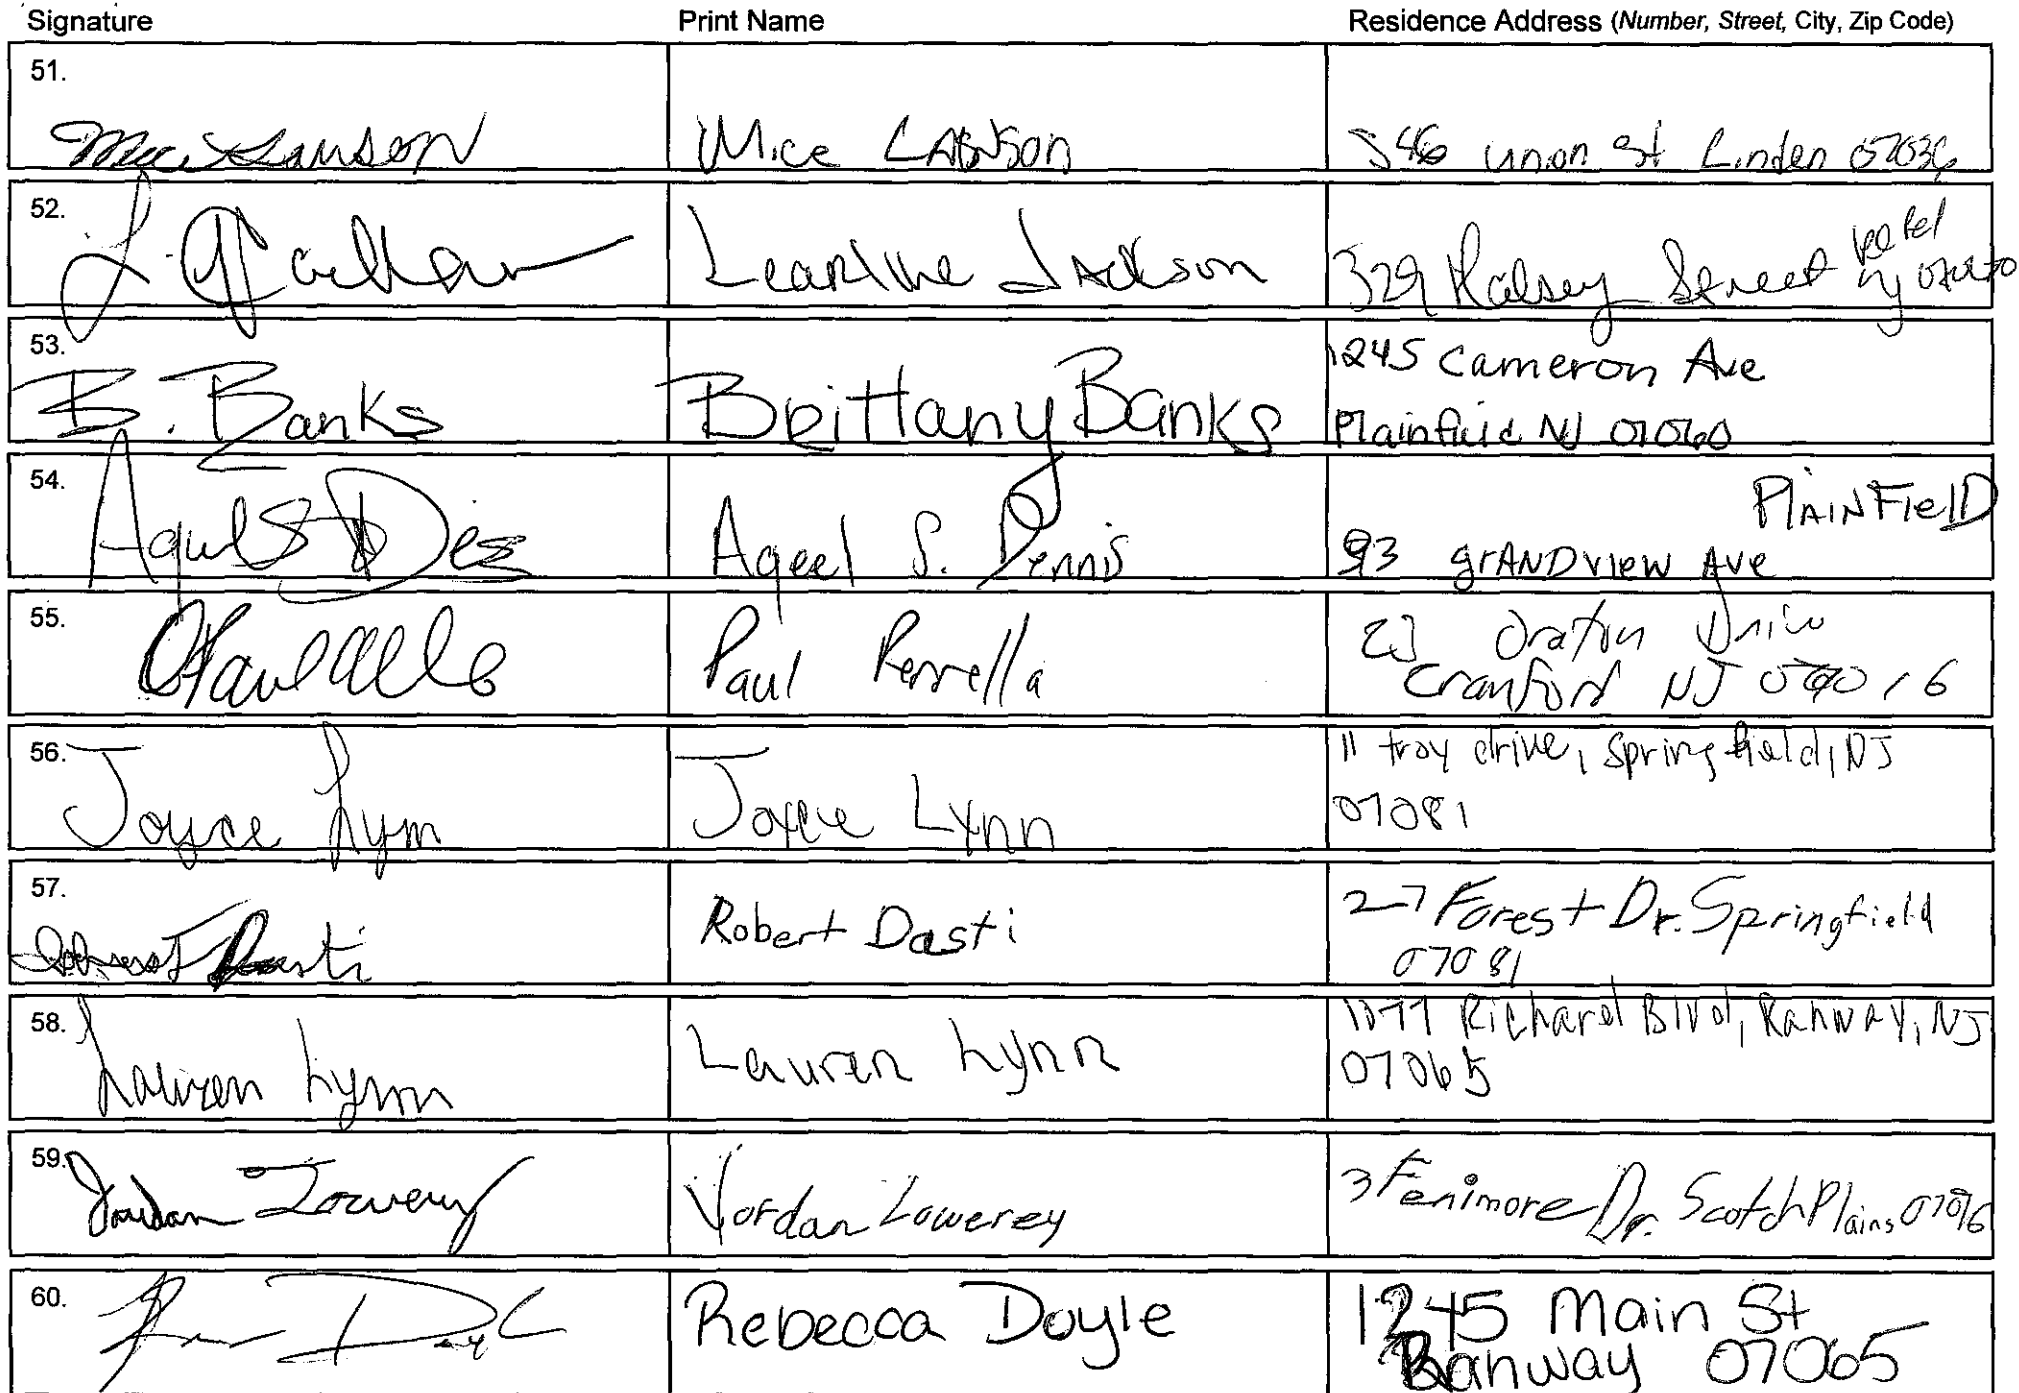 Signature Print Name Residence Address (Number, Street, City, Zip Code)
51.
Mice Lawson 346 union st Linden 07036
52.
Jackson 329 Halsey Street
NJ
53.
B. Banks Brittany Banks 1245 Cameron Ave
Plainfield NJ 07060
54.
Aqeel S. Dennis PlAINFielD
93 grANDview Ave
55.
Paul 23 Oraton Drive
Cranford NJ 07016
56.
Joyce Lynn Joyce Lynn 11 troy drive, Springfield, NJ
07081
57.
Robert Dasti 27 Forest Dr. Springfield
07081
58.
Lauren Lynn Lauren Lynn Richard Blvd, Rahway, NJ
07065
59.
Jordan Lowerey Jordan Lowerey 3 Fenimore Dr. Scotch Plains 07076
60.
Rebecca Doyle 1245 Main St
Rahway 07065